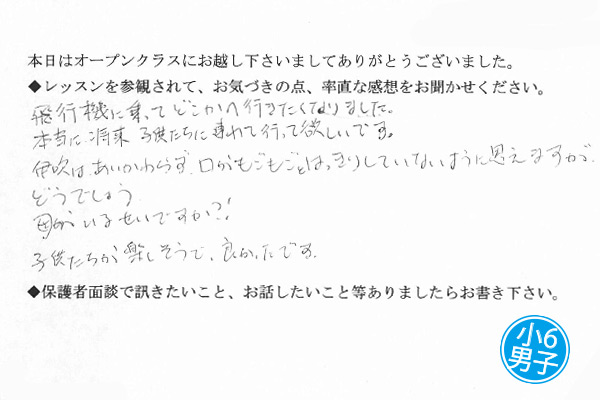 本日はオープンクラスにお越し下さいましてありがとうございました。
◆レッスンを参観されて、お気づきの点、率直な感想をお聞かせください。
飛行機に乗ってどこかへ行きたくなりました。
本当に将来 子供たちに連れて行って欲しいです。
伊吹は、あいかわらず、口がもごもごとはっきりしていないように思えますが、
どうでしょう
母がいるせいですか?!
子供たちが楽しそうで、良かったです。
◆保護者面談で訊きたいこと、お話したいこと等ありましたらお書き下さい。
小6
男子